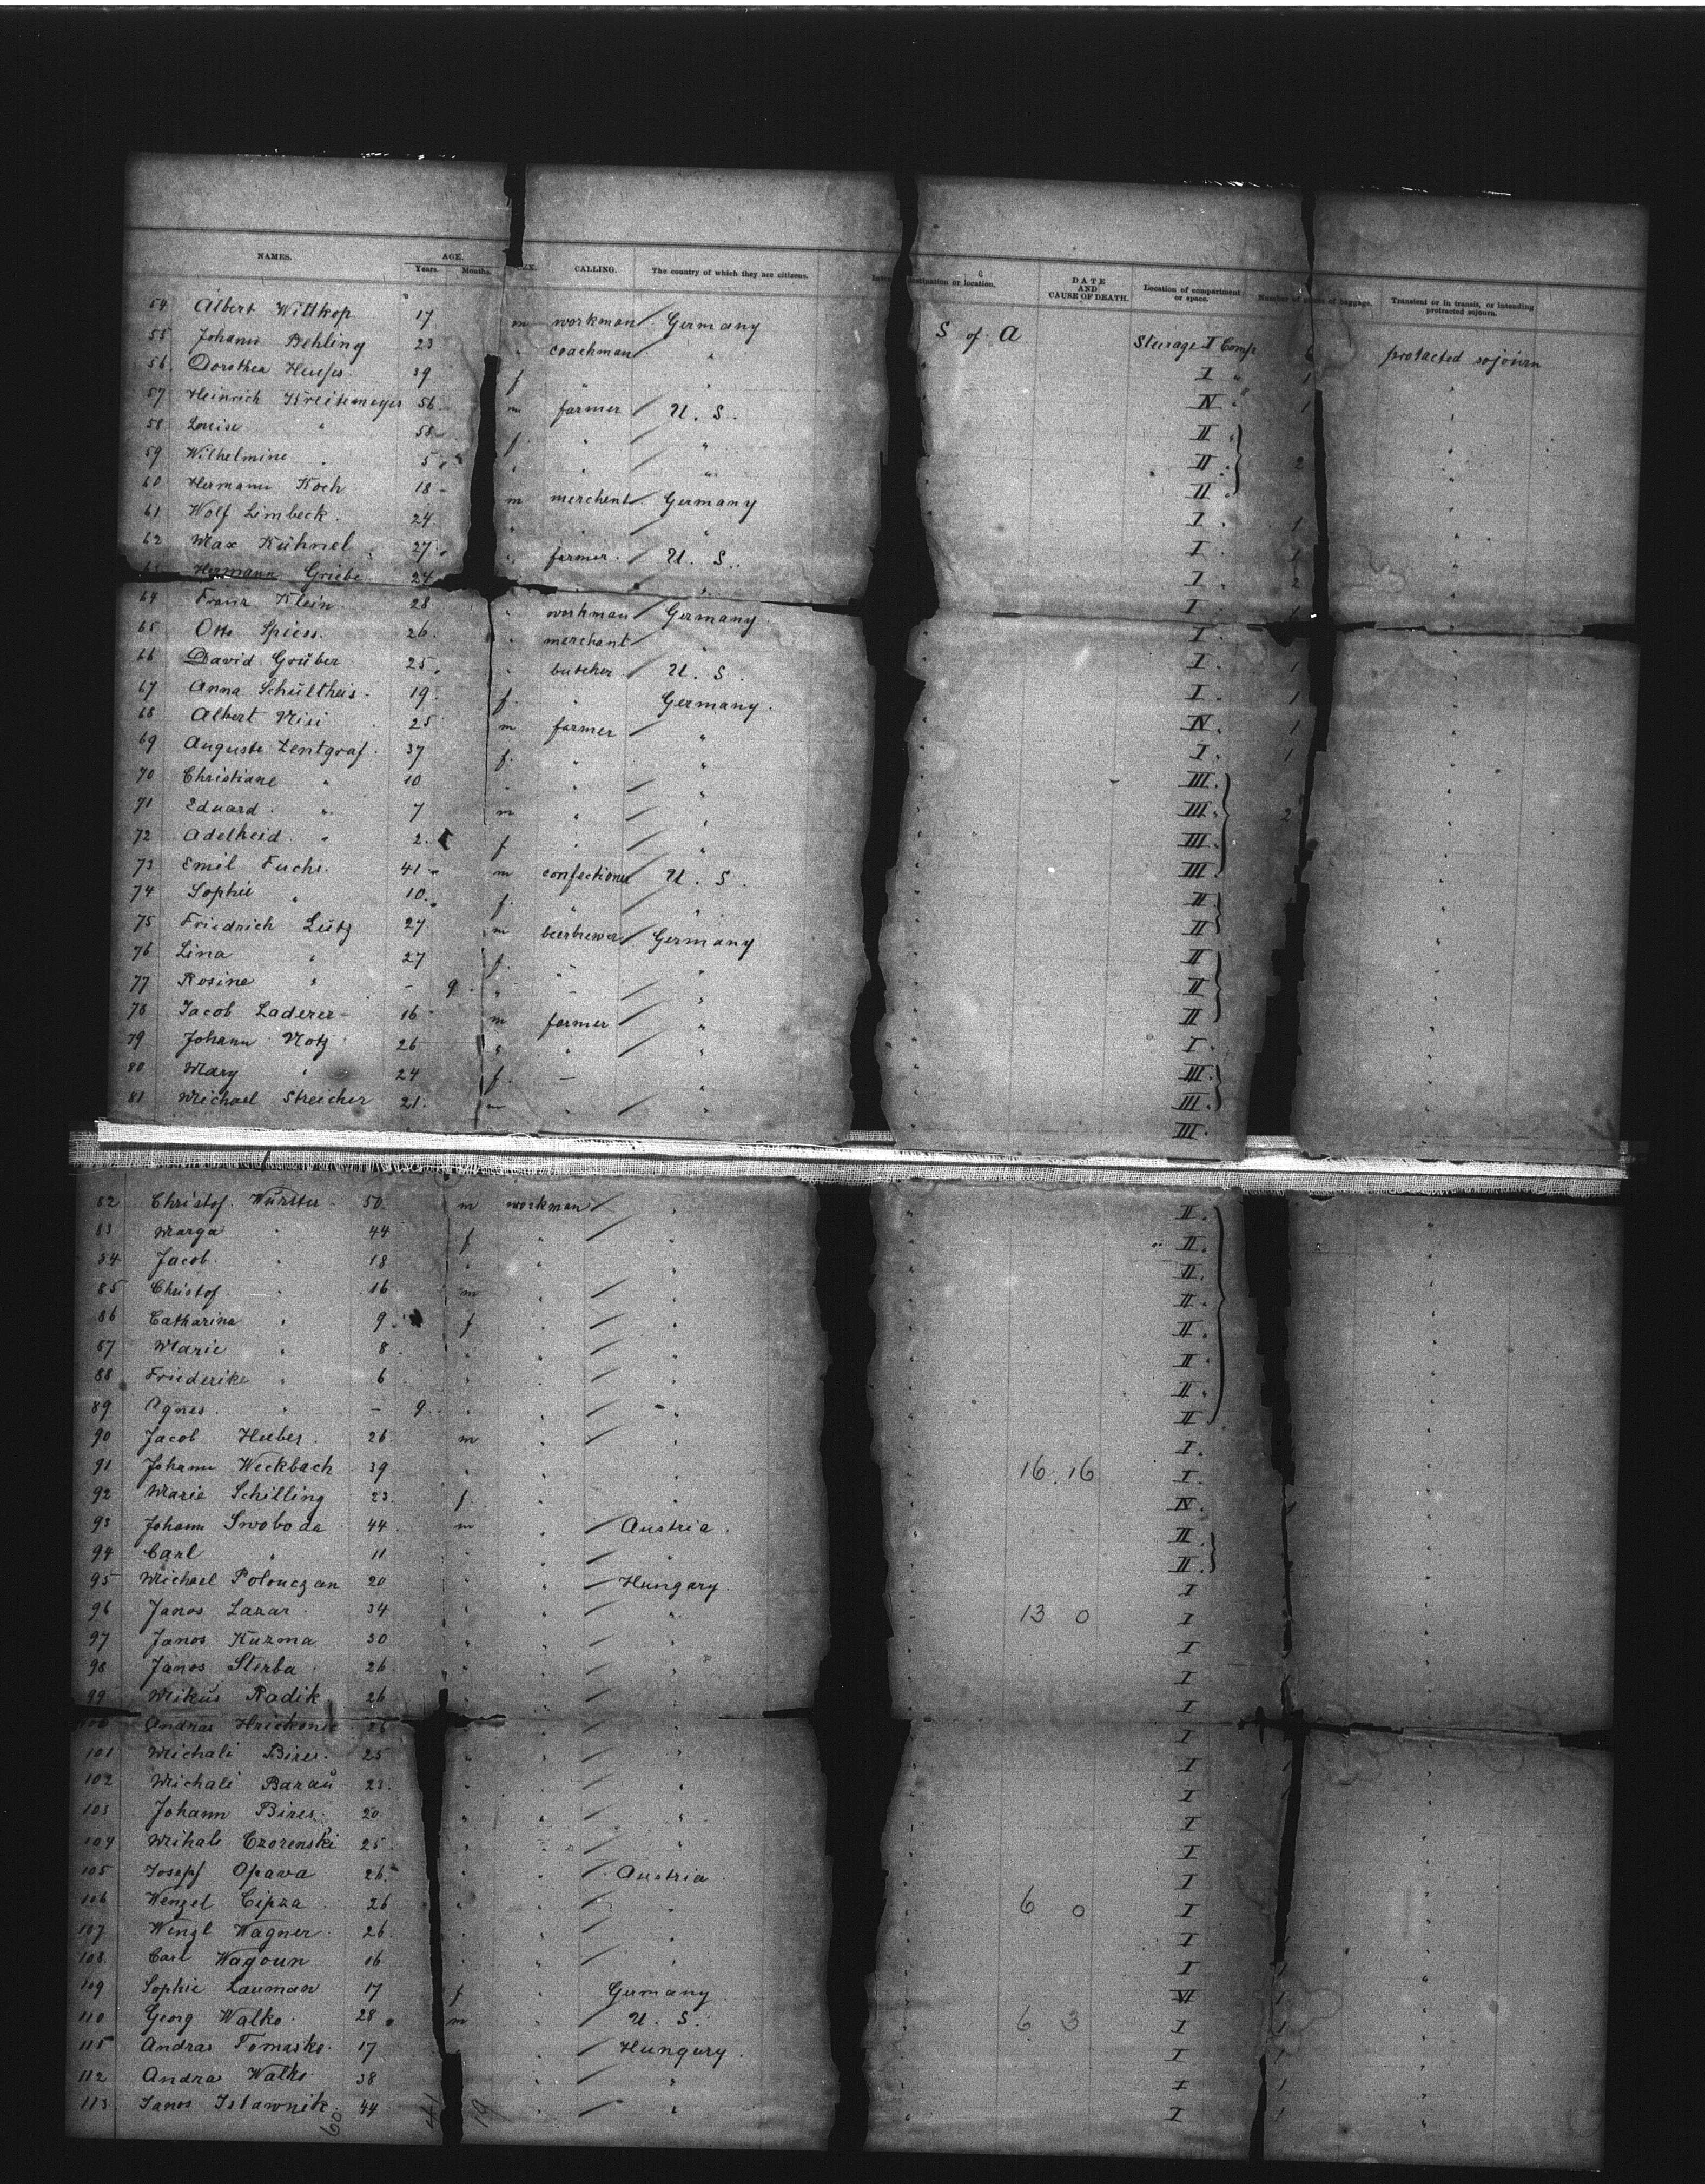 NAMES. AGE. Years. Months. CALLING. The country of which they are citizens. destination or location. DATE AND CAUSE OF DEATH. Location of compartment or space. Number of pieces of baggage. Transient or in transit, or intending protracted sojourn.
54 Albert Wittkop 17 m workman Germany S of A Sterage I Comp protacted sojourn
55 Johann Behling 23 " coachman " I " 1 "
56 Dorothea 39 f " " IV " 1 "
57 Heinrich Kreitemeyer 56 m farmer U. S. II "
58 Louise " 58 f. " " II 2 "
59 Wilhelmine " 5 " " " II "
60 Hermann Koch 18 m merchent Germany I 1 "
61 Wolf Limbeck 24 " " " I 1 "
62 Max Kühnel 27 " farmer U. S. I 2 "
63 Hermann Griebe 24 " " I 1 "
64 Franz Klein 28 " workman Germany I "
65 Otto Spiess 26 " merchant " I 1 "
66 David Grüber 25 " butcher U. S. I 1 "
67 Anna Schültheis 19 f. " Germany IV 1 "
68 Albert Nisi 25 m farmer " I 1 "
69 Auguste Zentgraf 37 f. " " III "
70 Christiane " 10 " " " III 2 "
71 Eduard " 7 m " " III "
72 Adelheid " 2 f " " III "
73 Emil Fuchs 41 m confectioner U. S. II "
74 Sophie " 10 f. " " II "
75 Friedrich Lütz 27 m beerbrewer Germany II "
76 Lina " 27 f. " " II "
77 Rosine " - 9 " - " II "
78 Jacob Laderer 16 m farmer " I "
79 Johann Notz 26 " " " III "
80 Mary " 24 f. — " III "
81 Michael Streicher 21 m " " III "
82 Christof Würster 50 m workman " II "
83 Marga " 44 f " " II "
84 Jacob " 18 " " " II "
85 Christof " 16 m " " II "
86 Catharina " 9 f " " II "
87 Marie " 8 " " " II "
88 Friederike " 6 " " " II "
89 Agnes " - 9 " " " II "
90 Jacob Hueber 26 m " " I "
91 Johann Weckbach 39 " " " 16 16 I "
92 Marie Schilling 23 f " " IV 1 "
93 Johann Swoboda 44 m " Austria II "
94 Carl " 11 " " " II "
95 Michael Polonczan 20 " " Hungary I "
96 Janos Lazar 34 " " " 13 0 I "
97 Janos Kuzma 30 " " " I "
98 Janos Sterba 26 " " " I "
99 Mikus Radik 26 " " " I "
100 Andras 26 " " " I "
101 Michali Bires 25 " " " I "
102 Michali 23 " " " I "
103 Johann Bires 20 " " " I "
104 Mihali Czorenski 25 " " " I "
105 Josepf Opava 26 " " Austria I "
106 Wenzel Cipza 26 " " " 6 0 I "
107 Wenzl Wagner 26 " " " I "
108 Carl Wagoun 16 " " " I 1 "
109 Sophie Lauman 17 f " Germany VI 1 "
110 Georg Walko 28 m " U. S. 6 3 I 1 "
115 Andras Tomasko 17 " Hungary I 1 "
112 Andra Walko 38 " " I 1 "
113 Janos Istawnik 44 " " I 1 "
60 41 19